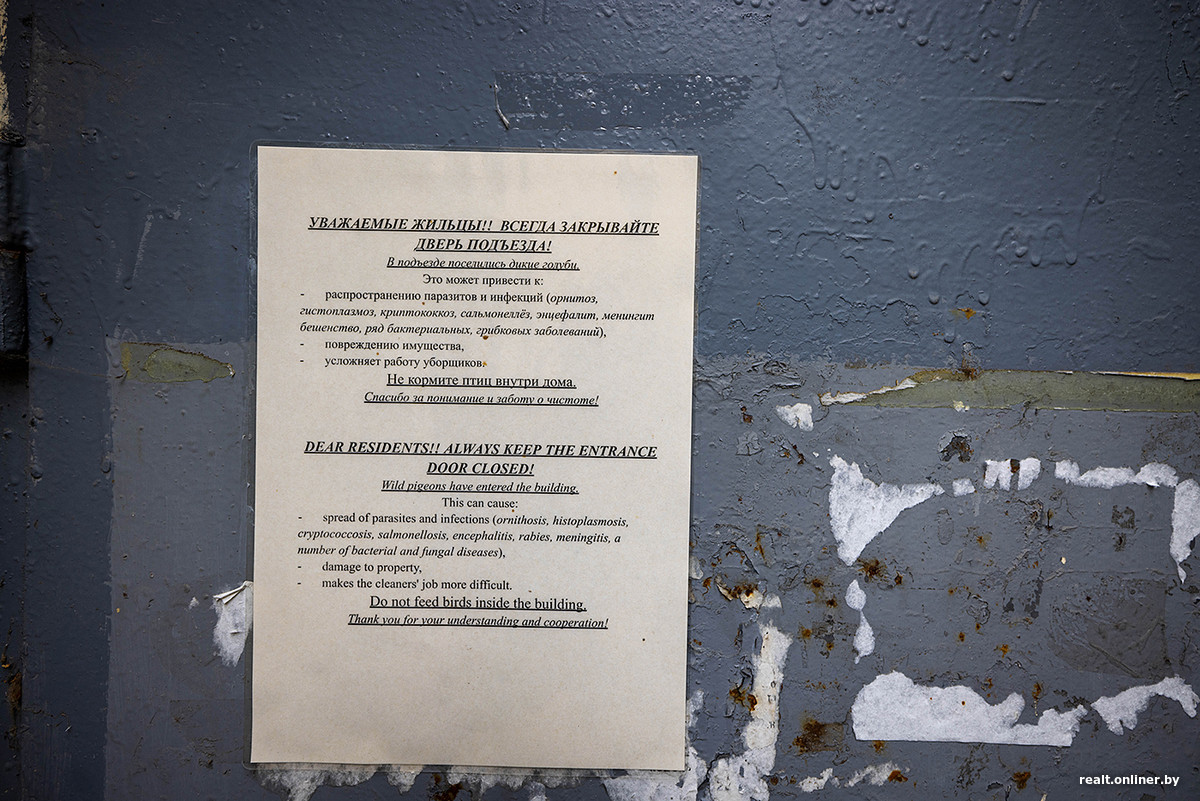 УВАЖАЕМЫЕ ЖИЛЬЦЫ!! ВСЕГДА ЗАКРЫВАЙТЕ
ДВЕРЬ ПОДЪЕЗДА!
В подъезде поселились дикие голуби.
Это может привести к:
- распространению паразитов и инфекций (орнитоз,
гистоплазмоз, криптококкоз, сальмонеллёз, энцефалит, менингит
бешенство, ряд бактериальных, грибковых заболеваний),
- повреждению имущества,
- усложняет работу уборщиков.
Не кормите птиц внутри дома.
Спасибо за понимание и заботу о чистоте!
DEAR RESIDENTS!! ALWAYS KEEP THE ENTRANCE
DOOR CLOSED!
Wild pigeons have entered the building.
This can cause:
- spread of parasites and infections (ornithosis, histoplasmosis,
cryptococcosis, salmonellosis, encephalitis, rabies, meningitis, a
number of bacterial and fungal diseases),
- damage to property,
- makes the cleaners' job more difficult.
Do not feed birds inside the building.
Thank you for your understanding and cooperation!
realt.onliner.by